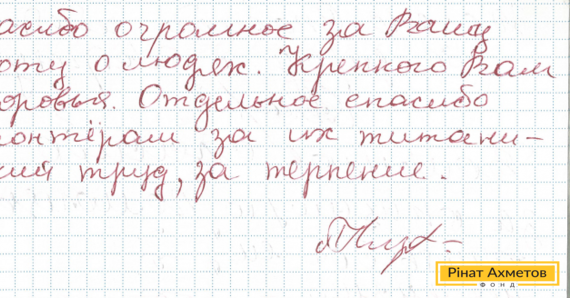 асибо огромное за Вашу
оту о людях. Крепкого Вам
оровья. Отдельное спасибо
онтёрам за их титани-
кий труд, за терпение.
Рінат Ахметов
ФОНД